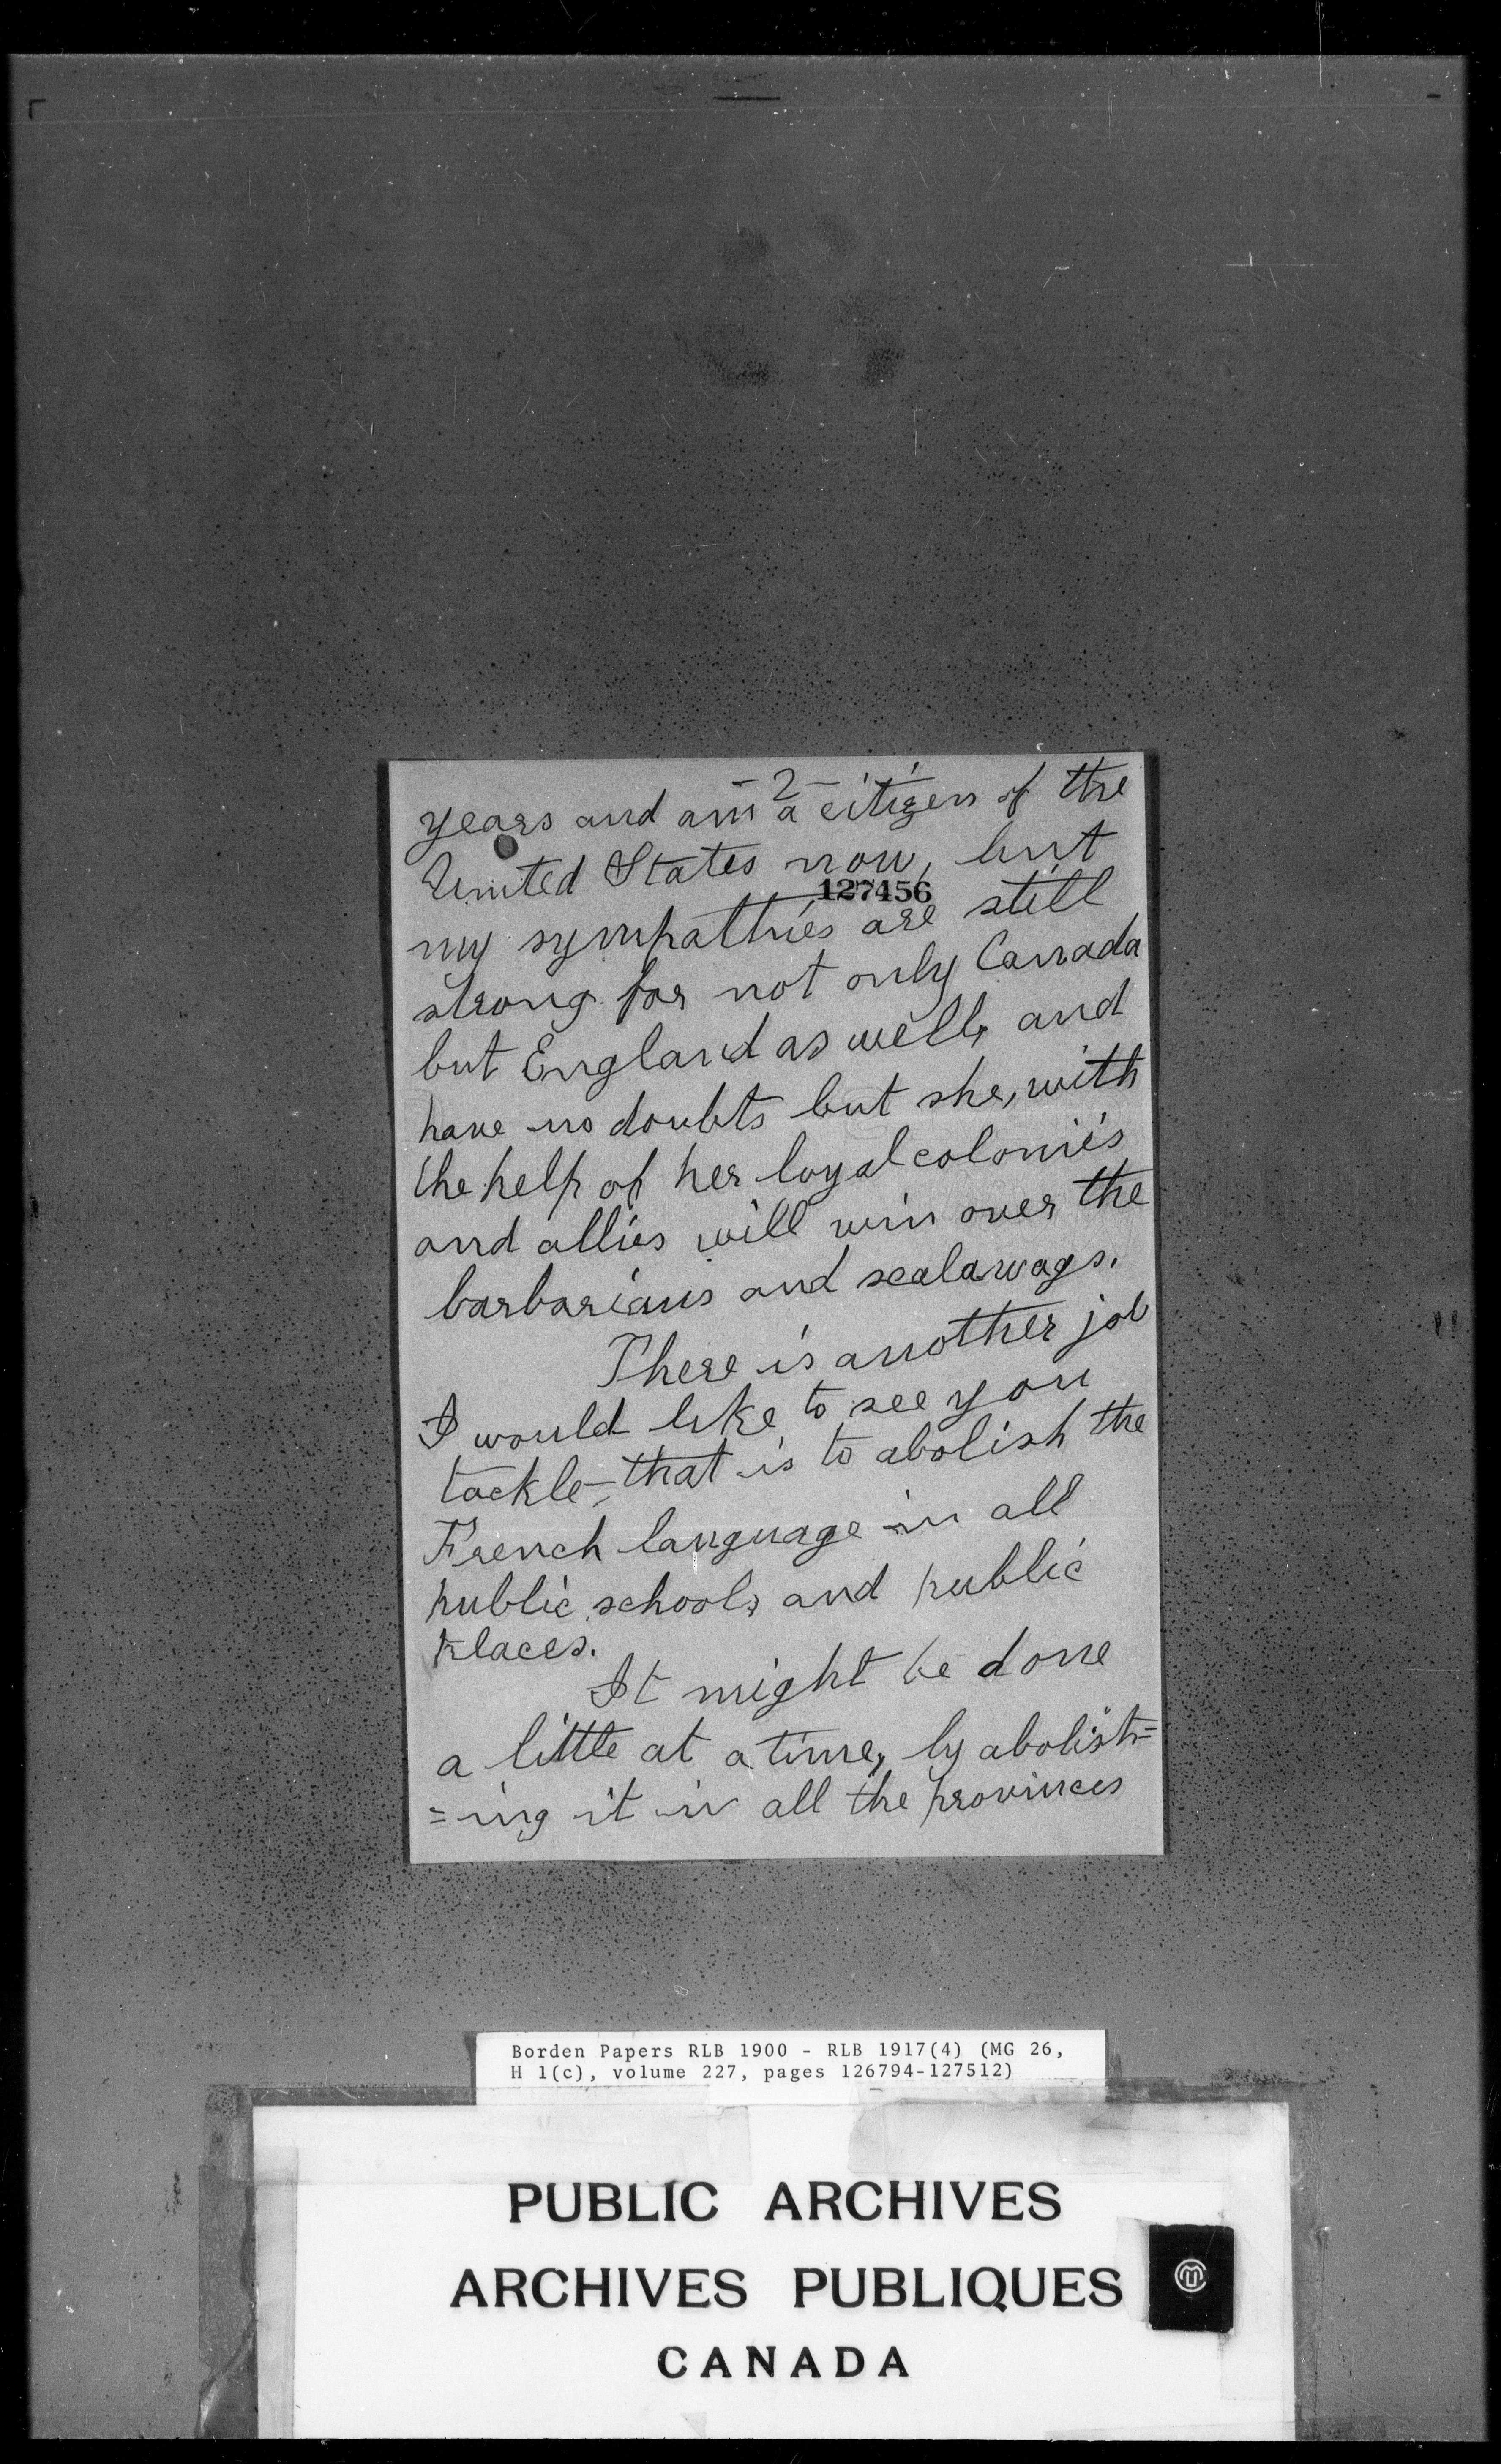 - 2 -
years and am a citizen of the
United States now, but
127456
my sympathies are still
strong for not only Canada
but England as well, and
have no doubts but she, with
the help of her loyal colonies
and allies will win over the
barbarians and scalawags.
There is another job
I would like to see you
tackle, - that is to abolish the
French language in all
public schools and public
places.
It might be done
a little at a time, by abolish=
=ing it in all the provinces
Borden Papers RLB 1900 - RLB 1917(4) (MG 26,
H 1(c), volume 227, pages 126794-127512)
PUBLIC ARCHIVES
ARCHIVES PUBLIQUES
CANADA